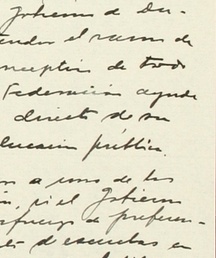 Gobierno de Du-
tender el ramo de
oncepción de todo
Federación ayude
directo de su
ducación pública.
n a uno de los
n, si el Gobierno
sfuerzo de preferen-
es de escuelas en